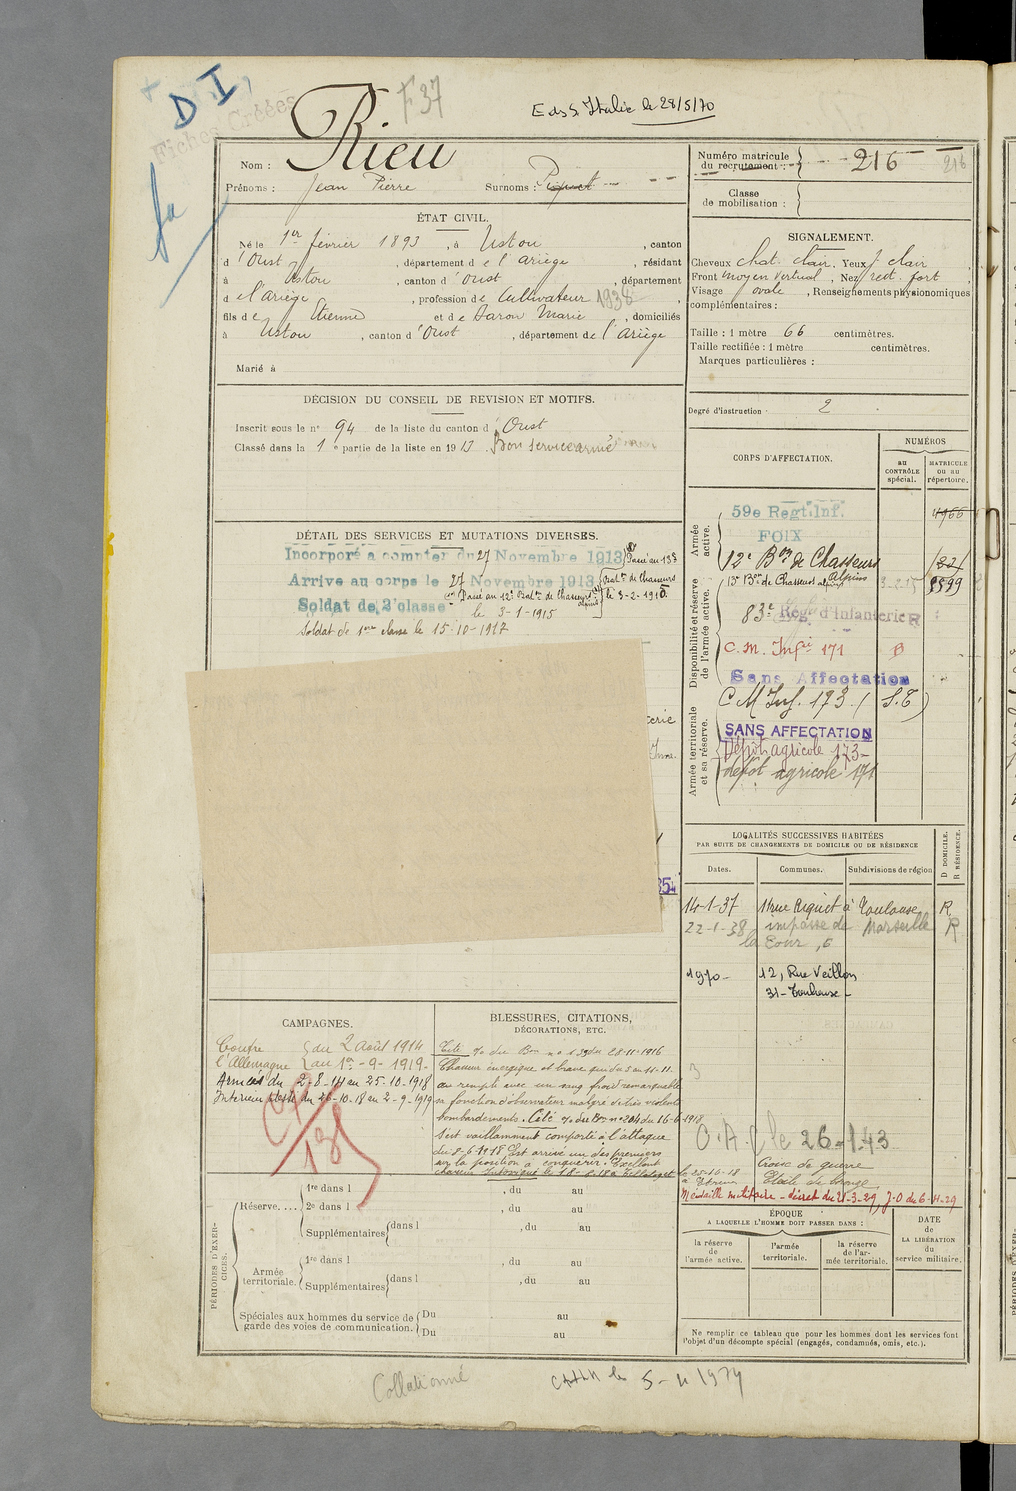 D I
Fiches Créées
F 37
E ds S. Italie le 28/5/70
fa
Nom : Rieu
Prénoms : Jean Pierre Surnoms : Piquet
Numéro matricule du recrutement : 216
216
Classe de mobilisation :
ÉTAT CIVIL.
Né le 1er février 1893, à Ustou, canton
d'Oust, département de l'Ariège, résidant
à Ustou, canton d'Oust, département
de l'Ariège, profession de Cultivateur 1938
fils de Etienne et de Saron Marie, domiciliés
à Ustou, canton d'Oust, département de l'Ariège
Marié à
SIGNALEMENT.
Cheveux chat. clair. Yeux j clair,
Front moyen vertical, Nez rect. fort,
Visage ovale, Renseignements physionomiques
complémentaires :
Taille : 1 mètre 66 centimètres.
Taille rectifiée : 1 mètre centimètres.
Marques particulières :
Degré d'instruction 2
DÉCISION DU CONSEIL DE REVISION ET MOTIFS.
Inscrit sous le n° 94 de la liste du canton d'Oust
Classé dans la 1e partie de la liste en 1913 Bon service armé
CORPS D'AFFECTATION.
NUMÉROS
au CONTRÔLE spécial.
MATRICULE ou au répertoire.
Armée active.
59e Regt. Inf. 4966
FOIX
12e Bon de Chasseurs
13e Bon de Chasseurs alpins 3-2-15 8599
Disponibilité et réserve de l'armée active.
83e Reg. d'Infanterie R
C. M. Infie 171
Sans Affectation
C M Inf. 173 (S.T)
Armée territoriale et sa réserve.
SANS AFFECTATION
Dépôt agricole 173
dépôt agricole 171
DÉTAIL DES SERVICES ET MUTATIONS DIVERSES.
Incorporé à compter du 27 Novembre 1913 Passé au 13e
Arrivé au corps le 27 Novembre 1913 Batn de Chasseurs
Soldat de 2e classe Passé au 12e Batn de Chasseurs alpins le 3-2-1915
le 3-1-1915
Soldat de 1ère classe le 15-10-1917
LOCALITÉS SUCCESSIVES HABITÉES
PAR SUITE DE CHANGEMENTS DE DOMICILE OU DE RÉSIDENCE
D DOMICILE.
R RÉSIDENCE.
Dates. Communes. Subdivisions de région
14-1-37 11 rue Riquet à Toulouse R
22-1-38 impasse de Marseille R
la Tour, 6
1970 - 12, Rue Veillon
31 - Toulouse -
CAMPAGNES.
Contre du 2 août 1914
l'Allemagne au 1er-9-1919.
Armées du 2-8-14 au 25-10-1918
Intérieur blessé du 26-10-18 au 2-9-1919
BLESSURES, CITATIONS,
DÉCORATIONS, ETC.
Cité o/o du Bon n° 139 du 28-11-1916
Chasseur énergique et brave qui du 5 au 11-11.
a rempli avec un sang froid remarquable
sa fonction d'observateur malgré de très violents
bombardements. Cité o/o du Bon n° 204 du 16-6-1918
S'est vaillamment comporté à l'attaque
du 8-6-1918 Est arrivé un des premiers
sur la position à conquérir. Excellent
chasseur
O.A. le 26-1-43
Croix de guerre
Etoile de bronze.
Médaille militaire - décret du 21-3-29, J.O du 6-4-29
PÉRIODES D'EXERCICES.
Réserve....
1re dans l , du au
2e dans l , du au
Supplémentaires dans l , du au
Armée territoriale.
1re dans l , du au
Supplémentaires dans l , du au
Spéciales aux hommes du service de garde des voies de communication.
Du au
Du au
ÉPOQUE
A LAQUELLE L'HOMME DOIT PASSER DANS :
la réserve de l'armée active.
l'armée territoriale.
la réserve de l'armée territoriale.
DATE de LA LIBÉRATION du service militaire.
Ne remplir ce tableau que pour les hommes dont les services font
l'objet d'un décompte spécial (engagés, condamnés, omis, etc.).
Collationné
le 5-11 1974